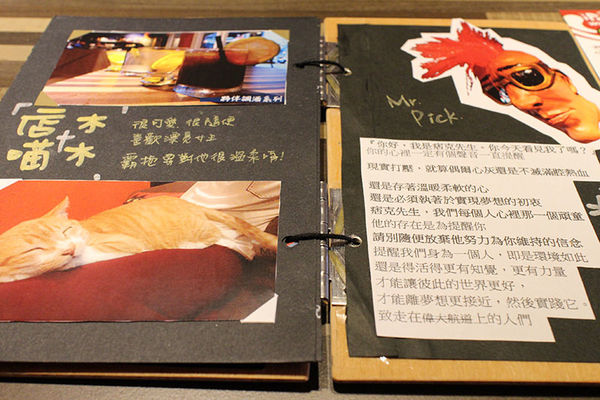 調酒系列
「店喵
木木
很可愛 很隨便
喜歡漂亮
對他很溫柔唷!
Mr.
Pick.
『你好，我是痞克先生，你今天看見我了嗎？
你的心裡一定有個聲音一直提醒
現實打壓，就算偶爾心灰還是不滅滿腔熱血
還是存著溫暖柔軟的心
還是必須執著於實現夢想的初衷
痞克先生，我們每個人心裡那一個頑童
他的存在是為提醒你
請別隨便放棄他努力為你維持的信念
提醒我們身為一個人，即是環境如此
還是得活得更有知覺，更有力量
才能讓彼此的世界更好，
才能離夢想更接近，然後實踐它。
致走在偉大航道上的人們